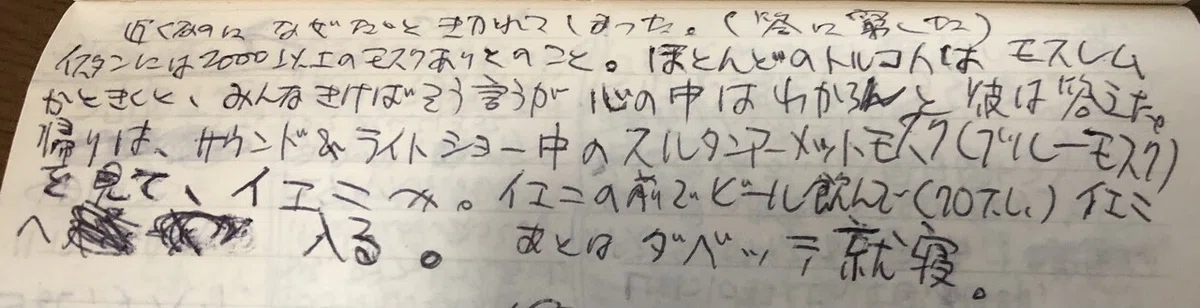 近くなのになぜだときかれてしまった。(答に窮した)
イスタンには2000以上のモスクありとのこと。ほとんどのトルコ人はモスレム
かときくと、みんなきけばそう言うが心の中はわからんと彼は答えた。
帰りは、サウンド&ライトショー中のスルタンアーメットモスク(ブルーモスク)
を見て、イエニへ。イエニの前でビール飲んで(70T.L.)イエニ
へ 入る。あとはダベッテ就寝。